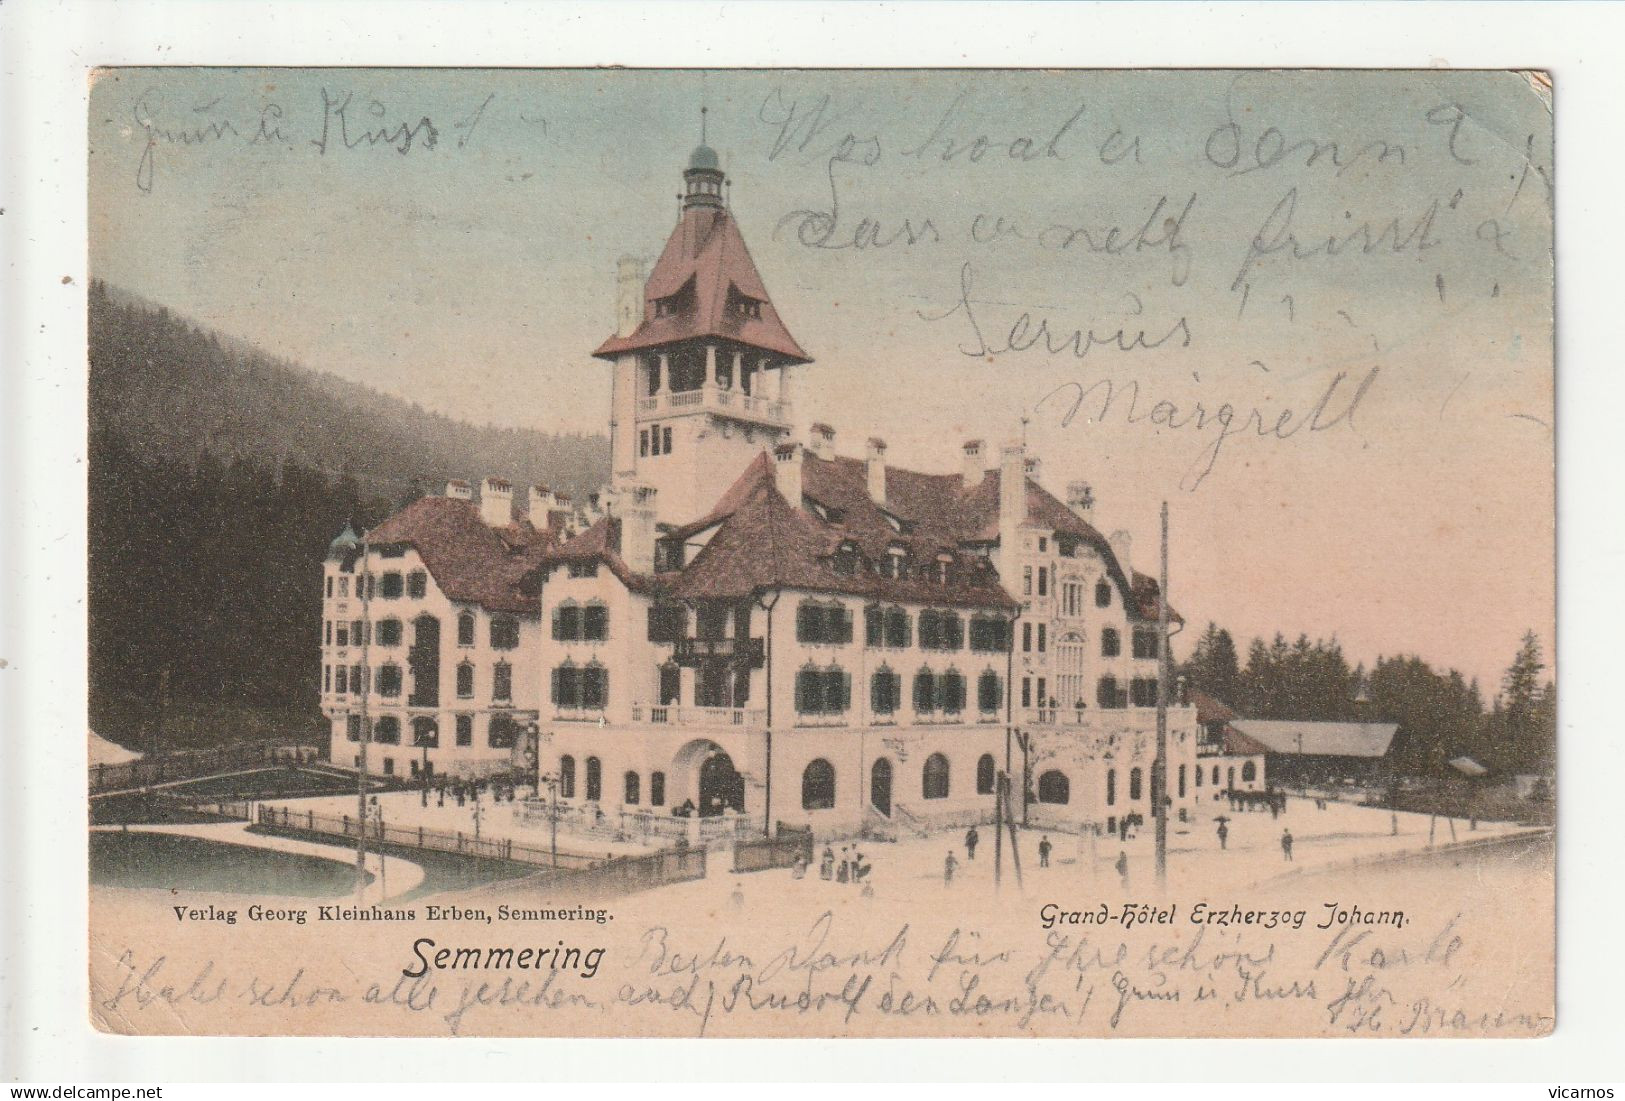 Gruss u. Kuss!
Was hat er denn?
Dass er nett frisst!
Servus
Margrett
Verlag Georg Kleinhans Erben, Semmering.
Grand-Hôtel Erzherzog Johann.
Semmering
Besten Dank für Ihre schöne Karte
Habe schon alle gesehen, auch Rudolf den Langen! Gruss u. Kuss Ihr
H. Braun
www.delcampe.net
vicarnos